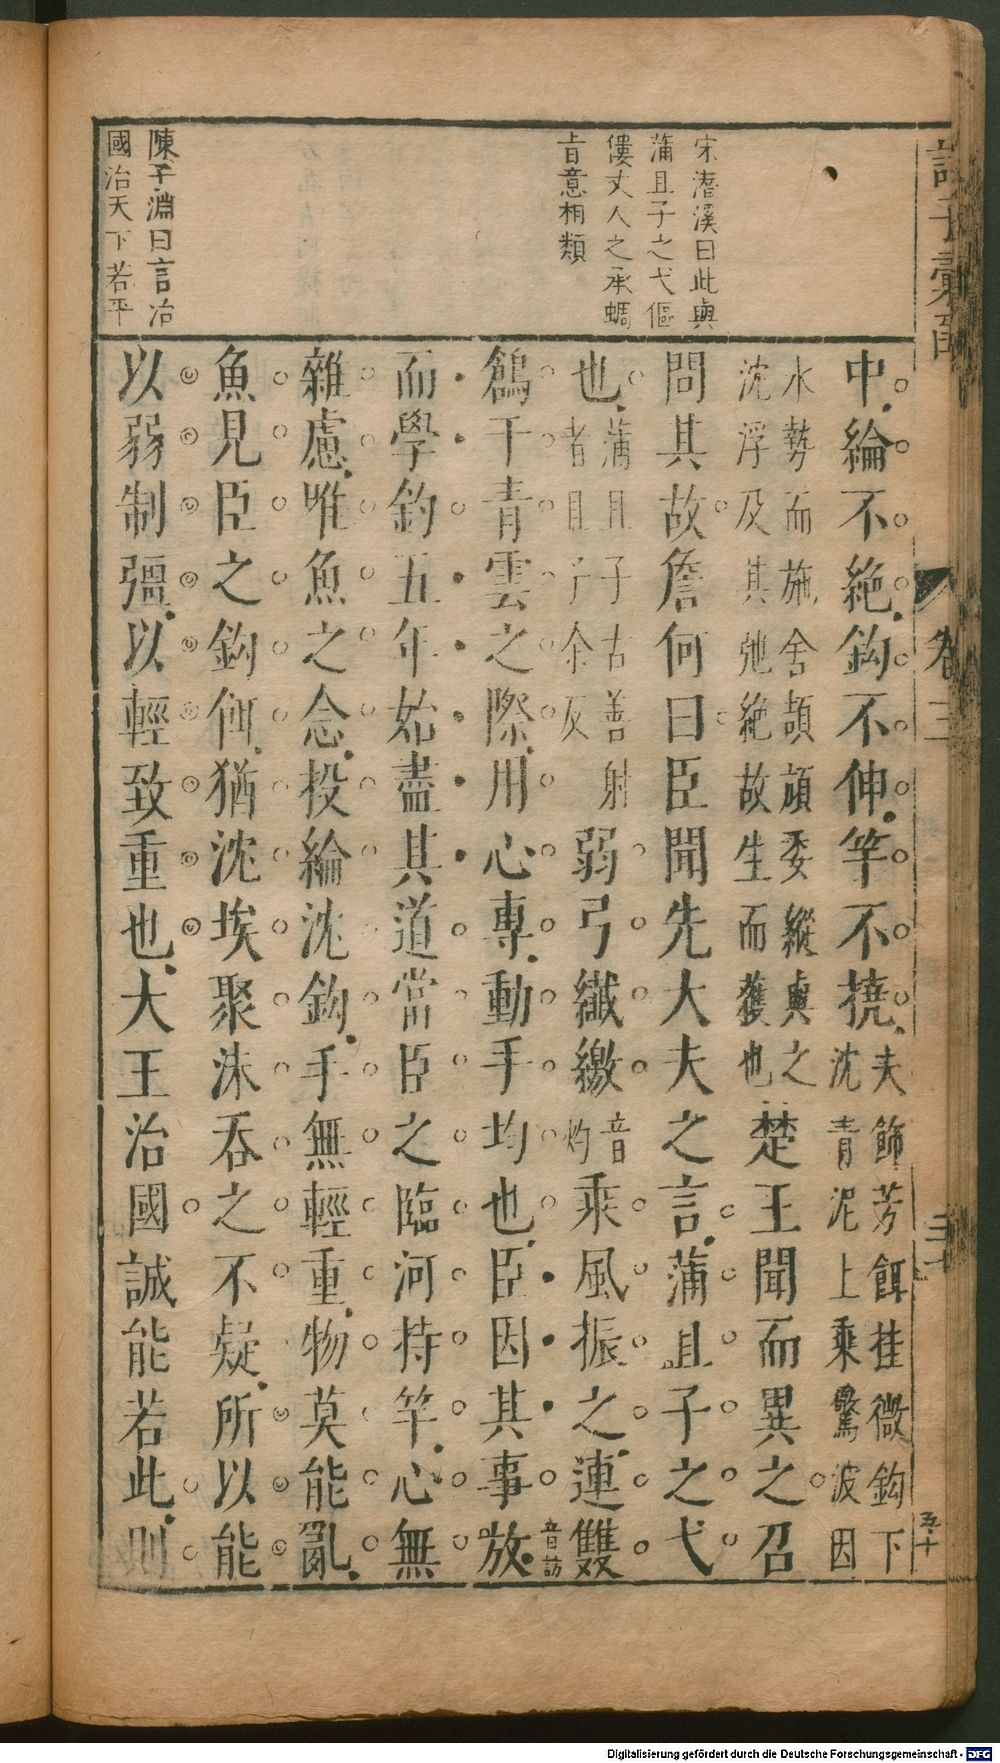 宋潛溪曰此與
蒲且子之弋傴
僂丈人之承蜩
㫖意相類
陳子淵曰言治
國治天下若平
中綸不絶鈎不伸竿不撓夫飾芳餌挂微鈎下沈青泥上乘驚波因
水勢而施舍頡頏委縱與之沈浮及其弛絶故生而獲也楚王聞而異之召
問其故詹何曰臣聞先大夫之言蒲且子之弋
也蒲且子古善射者且子余反弱弓纖繳音灼乘風振之連雙
鶬于青雲之際用心專動手均也臣因其事放音訪
而學釣五年始盡其道當臣之臨河持竿心無
雜慮唯魚之念投綸沈鈎手無輕重物莫能亂
魚見臣之鈎餌猶沈埃聚沫吞之不疑所以能
以弱制彊以輕致重也大王治國誠能若此則
卷三
五十
Digitalisierung gefördert durch die Deutsche Forschungsgemeinschaft - DFG